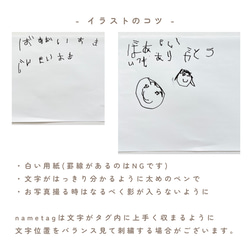 - イラストのコツ -
ばあばいつも
いつもありがとう
・白い用紙(罫線があるのはNGです)
・文字がはっきり分かるように太めのペンで
・お写真撮る時はなるべく影が入らないように
nametagは文字がタグ内に上手く収まるように
文字位置をバランス見て刺繍する場合がございます。